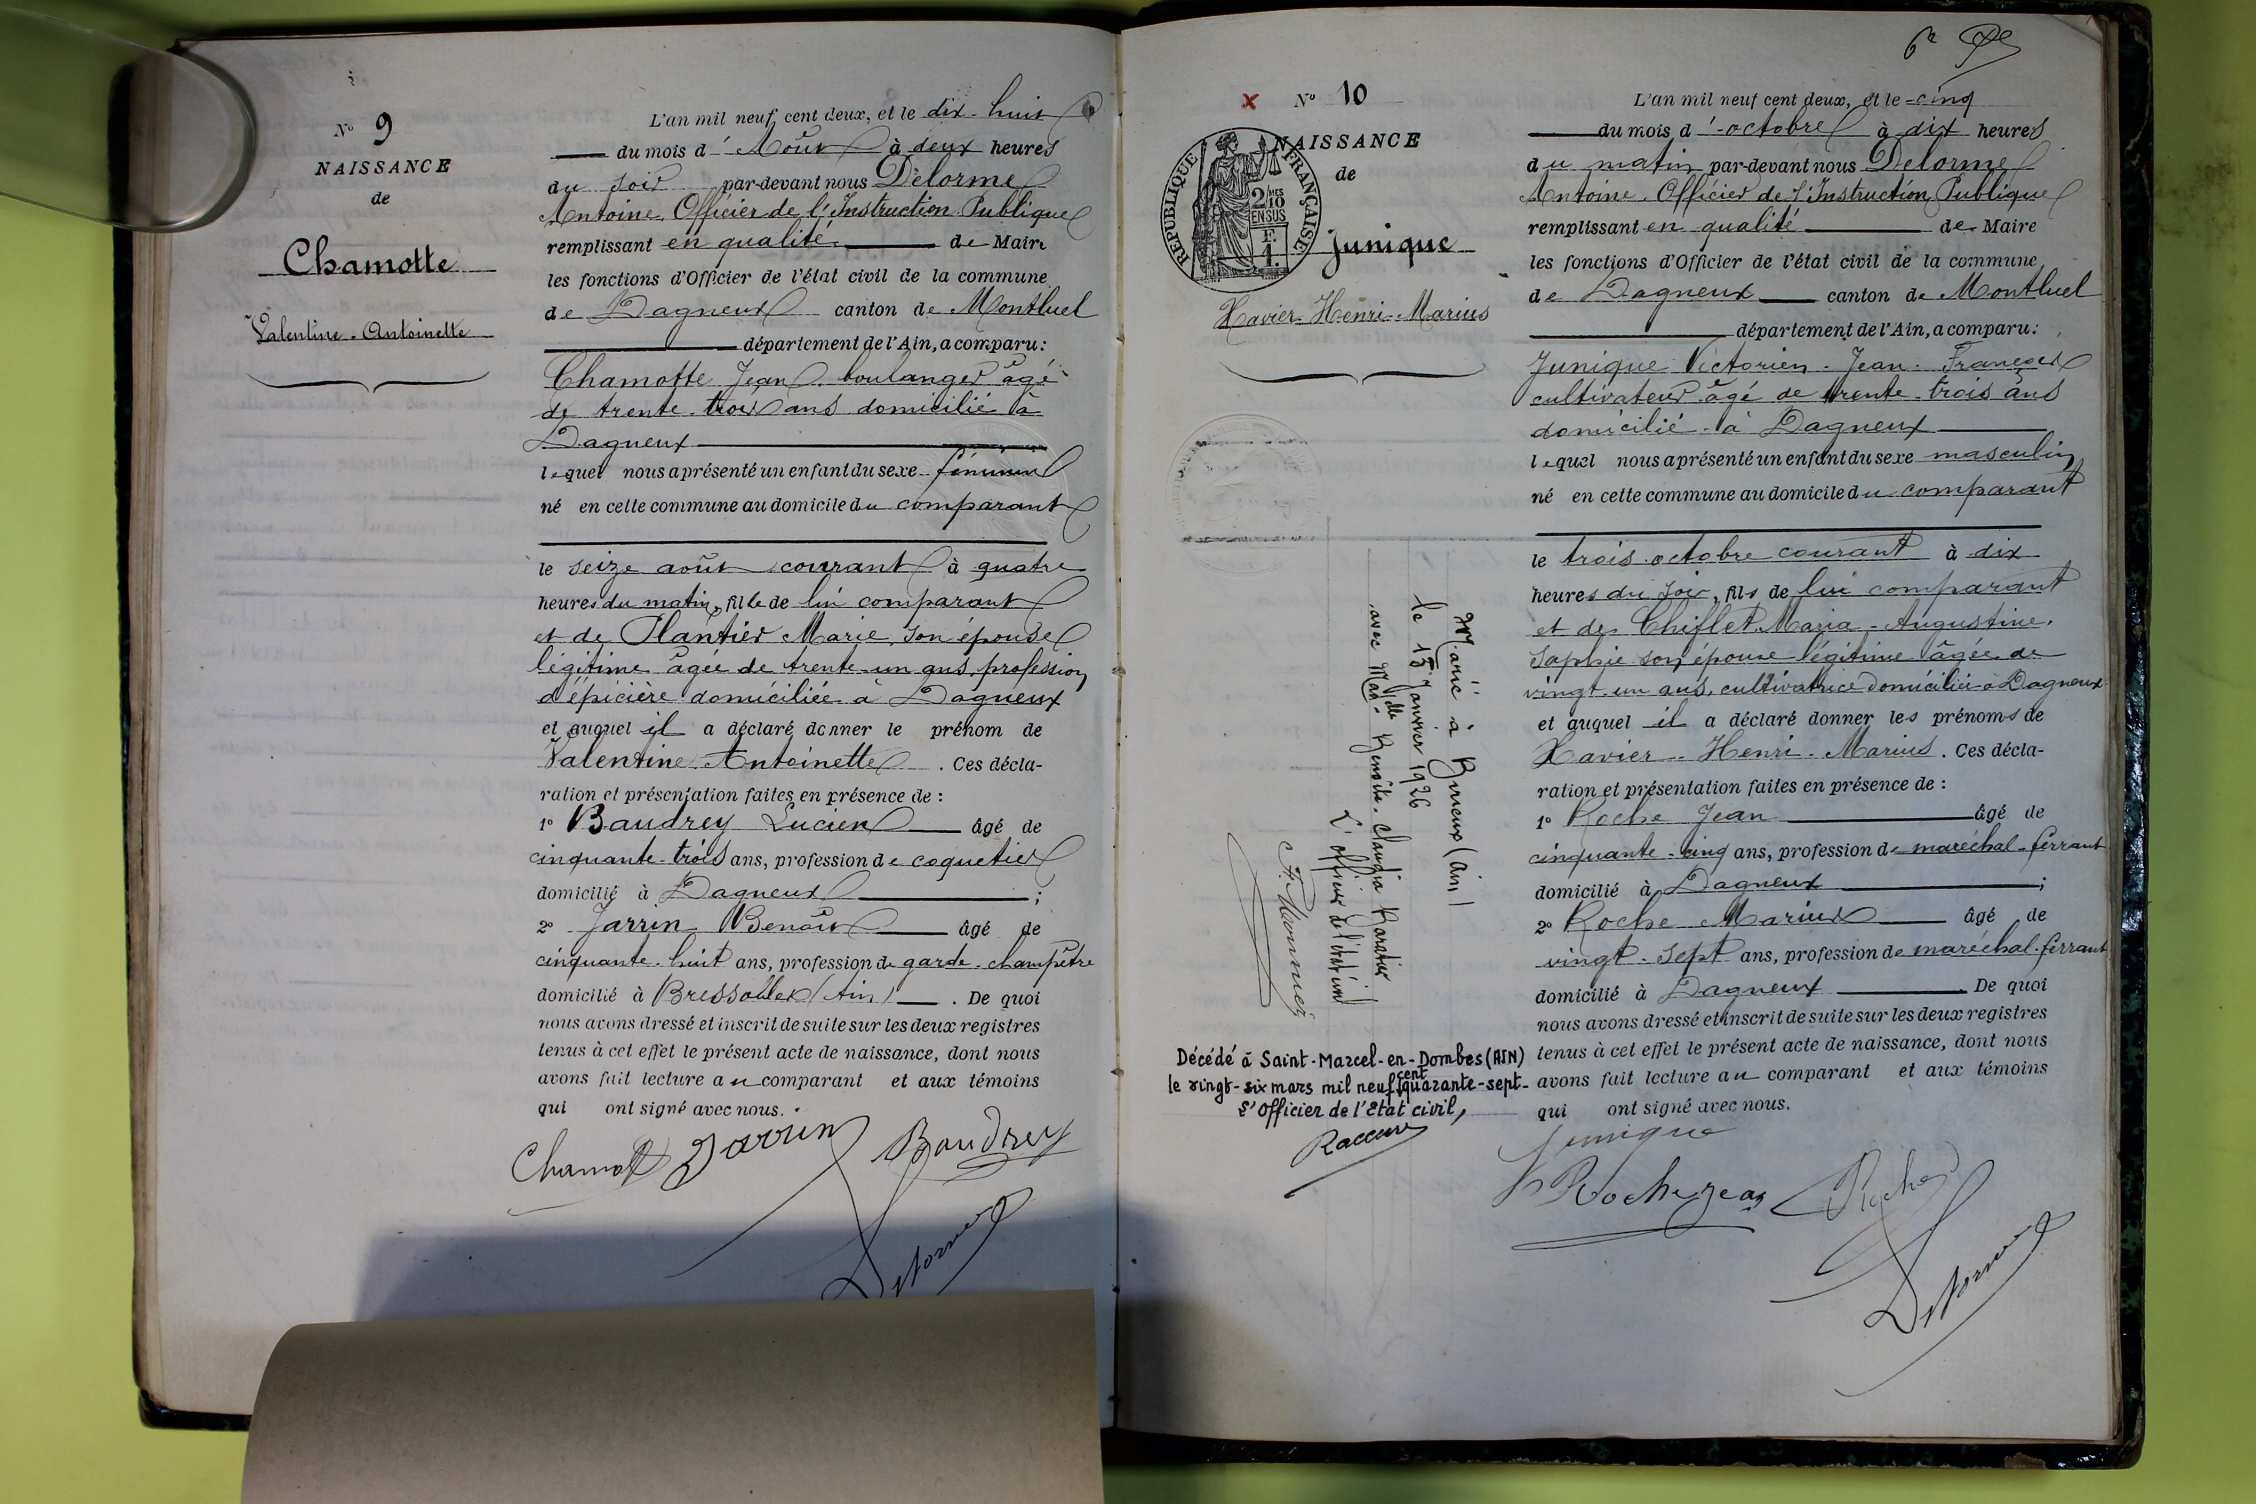 N° 9
NAISSANCE
de
Chamotte
Valentine-Antoinette
L'an mil neuf cent deux, et le dix-huit
du mois d'Août à deux heures
du soir par-devant nous Delorme
Antoine, Officier de l'Instruction Publique
remplissant en qualité de Maire
les fonctions d'Officier de l'état civil de la commune
de Dagneux canton de Montluel
département de l'Ain, a comparu :
Chamotte Jean, boulanger âgé
de trente-trois ans domicilié à
Dagneux
lequel nous a présenté un enfant du sexe féminin
né en cette commune au domicile du comparant
le seize août courant à quatre
heures du matin, fille de lui comparant
et de Plantier Marie, son épouse
légitime âgée de trente-un ans, profession
d'épicière domiciliée à Dagneux
et auquel il a déclaré donner le prénom de
Valentine-Antoinette. Ces décla-
ration et présentation faites en présence de :
1° Baudrey Lucien âgé de
cinquante-trois ans, profession de coquetier
domicilié à Dagneux ;
2° Jarrin Benoît âgé de
cinquante-huit ans, profession de garde-champêtre
domicilié à Bressolles (Ain). De quoi
nous avons dressé et inscrit de suite sur les deux registres
tenus à cet effet le présent acte de naissance, dont nous
avons fait lecture au comparant et aux témoins
qui ont signé avec nous.
Chamotte Jarrin Baudrey
Delorme
x N° 10
NAISSANCE
de
RÉPUBLIQUE FRANÇAISE
2 10MES
EN SUS
Junique
Xavier-Henri-Marius
Marié à Birieux (Ain)
le 15 Janvier 1926
avec Melle Benoîte-Claudia
L'officier de l'état civil
Décédé à Saint-Marcel-en-Dombes (AIN)
le vingt-six mars mil neuf cent quarante-sept-
L'Officier de l'Etat civil,
L'an mil neuf cent deux, et le cinq
du mois d'octobre à dix heures
du matin par-devant nous Delorme
Antoine, Officier de l'Instruction Publique
remplissant en qualité de Maire
les fonctions d'Officier de l'état civil de la commune
de Dagneux canton de Montluel
département de l'Ain, a comparu :
Junique Victorien-Jean-François
cultivateur âgé de trente-trois ans
domicilié à Dagneux
lequel nous a présenté un enfant du sexe masculin
né en cette commune au domicile du comparant
le trois octobre courant à dix
heures du soir, fils de lui comparant
et de Chifflet Maria-Augustine,
Sophie son épouse légitime âgée de
vingt-un ans, cultivatrice domiciliée à Dagneux
et auquel il a déclaré donner les prénoms de
Xavier-Henri-Marius. Ces décla-
ration et présentation faites en présence de :
1° Roche Jean âgé de
cinquante-cinq ans, profession de maréchal-ferrant
domicilié à Dagneux ;
2° Roche Marius âgé de
vingt-sept ans, profession de maréchal-ferrant
domicilié à Dagneux. De quoi
nous avons dressé et inscrit de suite sur les deux registres
tenus à cet effet le présent acte de naissance, dont nous
avons fait lecture au comparant et aux témoins
qui ont signé avec nous.
Junique
Roche Jean Roche
Delorme